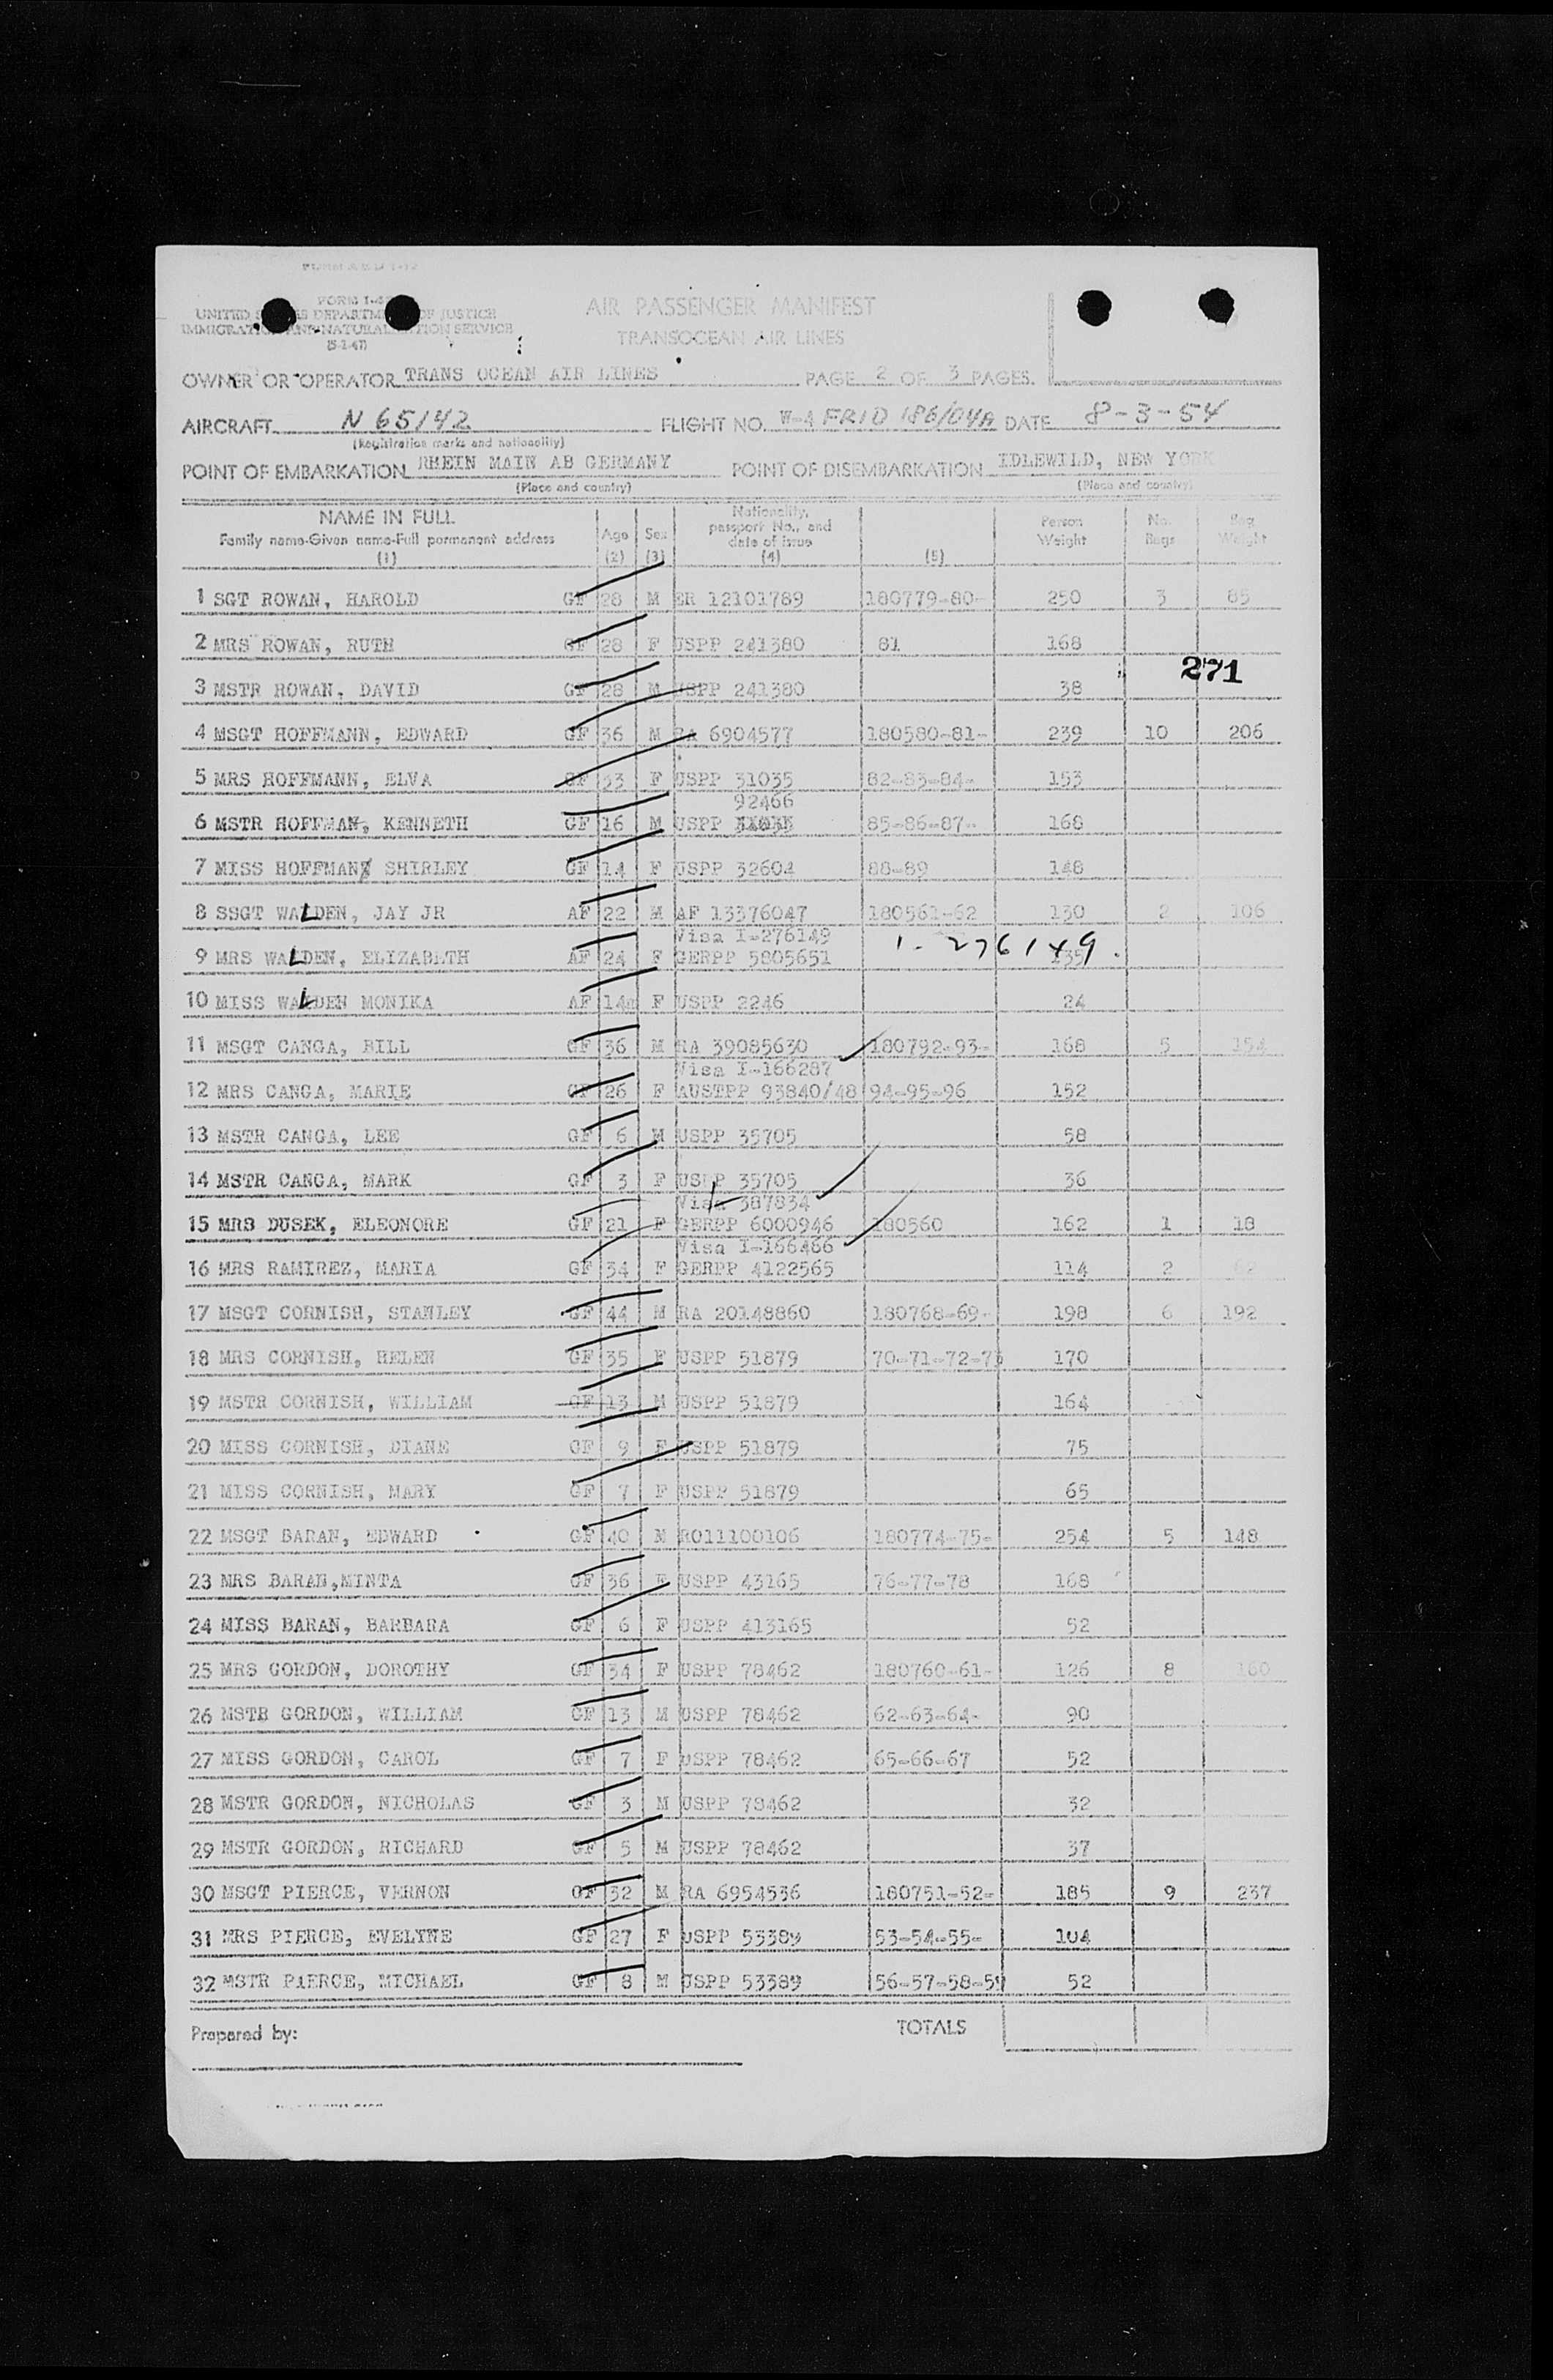 FORM I-4
UNITED S S DEPARTM OF JUSTICE
IMMIGRATION AND NATURALIZATION SERVICE
(5-1-47)
AIR PASSENGER MANIFEST
TRANSOCEAN AIR LINES
OWNER OR OPERATOR TRANS OCEAN AIR LINES PAGE 2 OF 3 PAGES.
AIRCRAFT N 65142 FLIGHT NO. W-4 FRID 186/04A DATE 8-3-54
(Registration marks and nationality)
POINT OF EMBARKATION RHEIN MAIN AB GERMANY POINT OF DISEMBARKATION IDLEWILD, NEW YORK
(Place and country) (Place and country)
NAME IN FULL Age Sex Nationality, passport No., and date of issue Person Weight No. Bags Bag Weight
Family name-Given name-Full permanent address
(1) (2) (3) (4) (5)
1 SGT ROWAN, HAROLD GF 28 M ER 12101789 180779-80- 250 3 85
2 MRS ROWAN, RUTH GF 28 F USPP 241380 81 168
271
3 MSTR ROWAN, DAVID GF 28 M USPP 241380 38
4 MSGT HOFFMANN, EDWARD GF 36 M RA 6904577 180580-81- 239 10 206
5 MRS HOFFMANN, ELVA GF 33 F USPP 31035 82-83-84- 153
92466
6 MSTR HOFFMAN, KENNETH GF 16 M USPP 85-86-87- 168
7 MISS HOFFMAN SHIRLEY GF 14 F USPP 32604 88-89 148
8 SSGT WALDEN, JAY JR AF 22 M AF 13376047 180561-62 130 2 106
Visa I-276149 1-276149.
9 MRS WALDEN, ELIZABETH AF 24 F GERPP 5805651 135
10 MISS WALDEN MONIKA AF 14m F USPP 2246 24
11 MSGT CANGA, BILL GF 36 M RA 39085630 180792-93- 168 5 154
Visa I-166287
12 MRS CANGA, MARIE GF 26 F AUSTPP 93840/48 94-95-96 152
13 MSTR CANGA, LEE GF 6 M USPP 35705 58
14 MSTR CANGA, MARK GF 3 F USPP 35705 36
Visa 387834
15 MRS DUSEK, ELEONORE GF 21 F GERPP 6000946 180560 162 1 18
Visa I-166466
16 MRS RAMIREZ, MARIA GF 34 F GERPP 4122565 114 2 62
17 MSGT CORNISH, STANLEY GF 44 M RA 20148860 180768-69- 198 6 192
18 MRS CORNISH, HELEN GF 35 F USPP 51879 70-71-72-73 170
19 MSTR CORNISH, WILLIAM GF 13 M USPP 51879 164
20 MISS CORNISH, DIANE GF 9 F USPP 51879 75
21 MISS CORNISH, MARY GF 7 F USPP 51879 65
22 MSGT BARAN, EDWARD GF 40 M RO11100106 180774-75- 254 5 148
23 MRS BARAN,MINTA GF 36 F USPP 43165 76-77-78 168
24 MISS BARAN, BARBARA GF 6 F USPP 413165 52
25 MRS GORDON, DOROTHY GF 34 F USPP 78462 180760-61- 126 8 160
26 MSTR GORDON, WILLIAM GF 13 M USPP 78462 62-63-64- 90
27 MISS GORDON, CAROL GF 7 F USPP 78462 65-66-67 52
28 MSTR GORDON, NICHOLAS GF 3 M USPP 78462 32
29 MSTR GORDON, RICHARD GF 5 M USPP 78462 37
30 MSGT PIERCE, VERNON GF 32 M RA 6954536 180751-52- 185 9 237
31 MRS PIERCE, EVELYNE GF 27 F USPP 53389 53-54-55- 104
32 MSTR PIERCE, MICHAEL GF 8 M USPP 53389 56-57-58-59 52
Prepared by: TOTALS